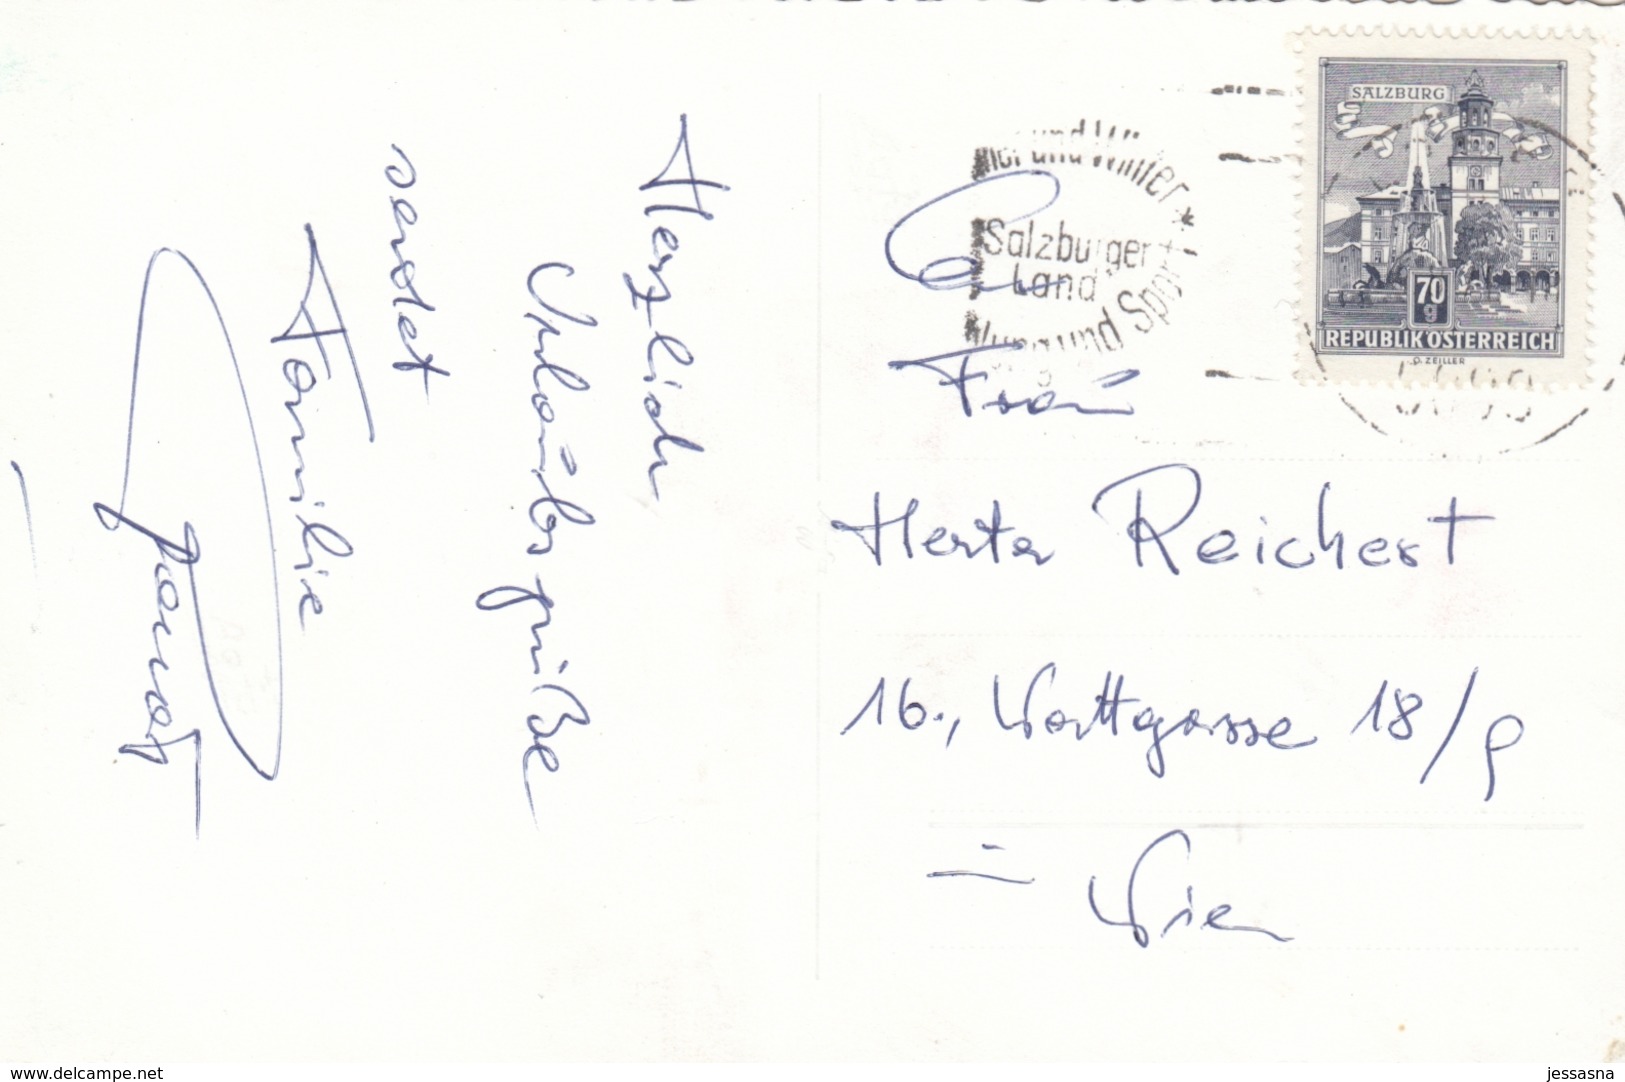 Herzlich
Urlaubsgrüße
sendet
Familie
An
Frau
Herta Reichert
16., Wattgasse 18/9
Wien
Sommer und Winter *
Salzburger
Land
und Sport
SALZBURG
70
g
REPUBLIK ÖSTERREICH
O. ZEILLER
www.delcampe.net
jessasna